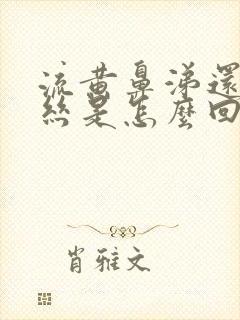 流黃鼻涕還
絲是怎麼回
肖雅文